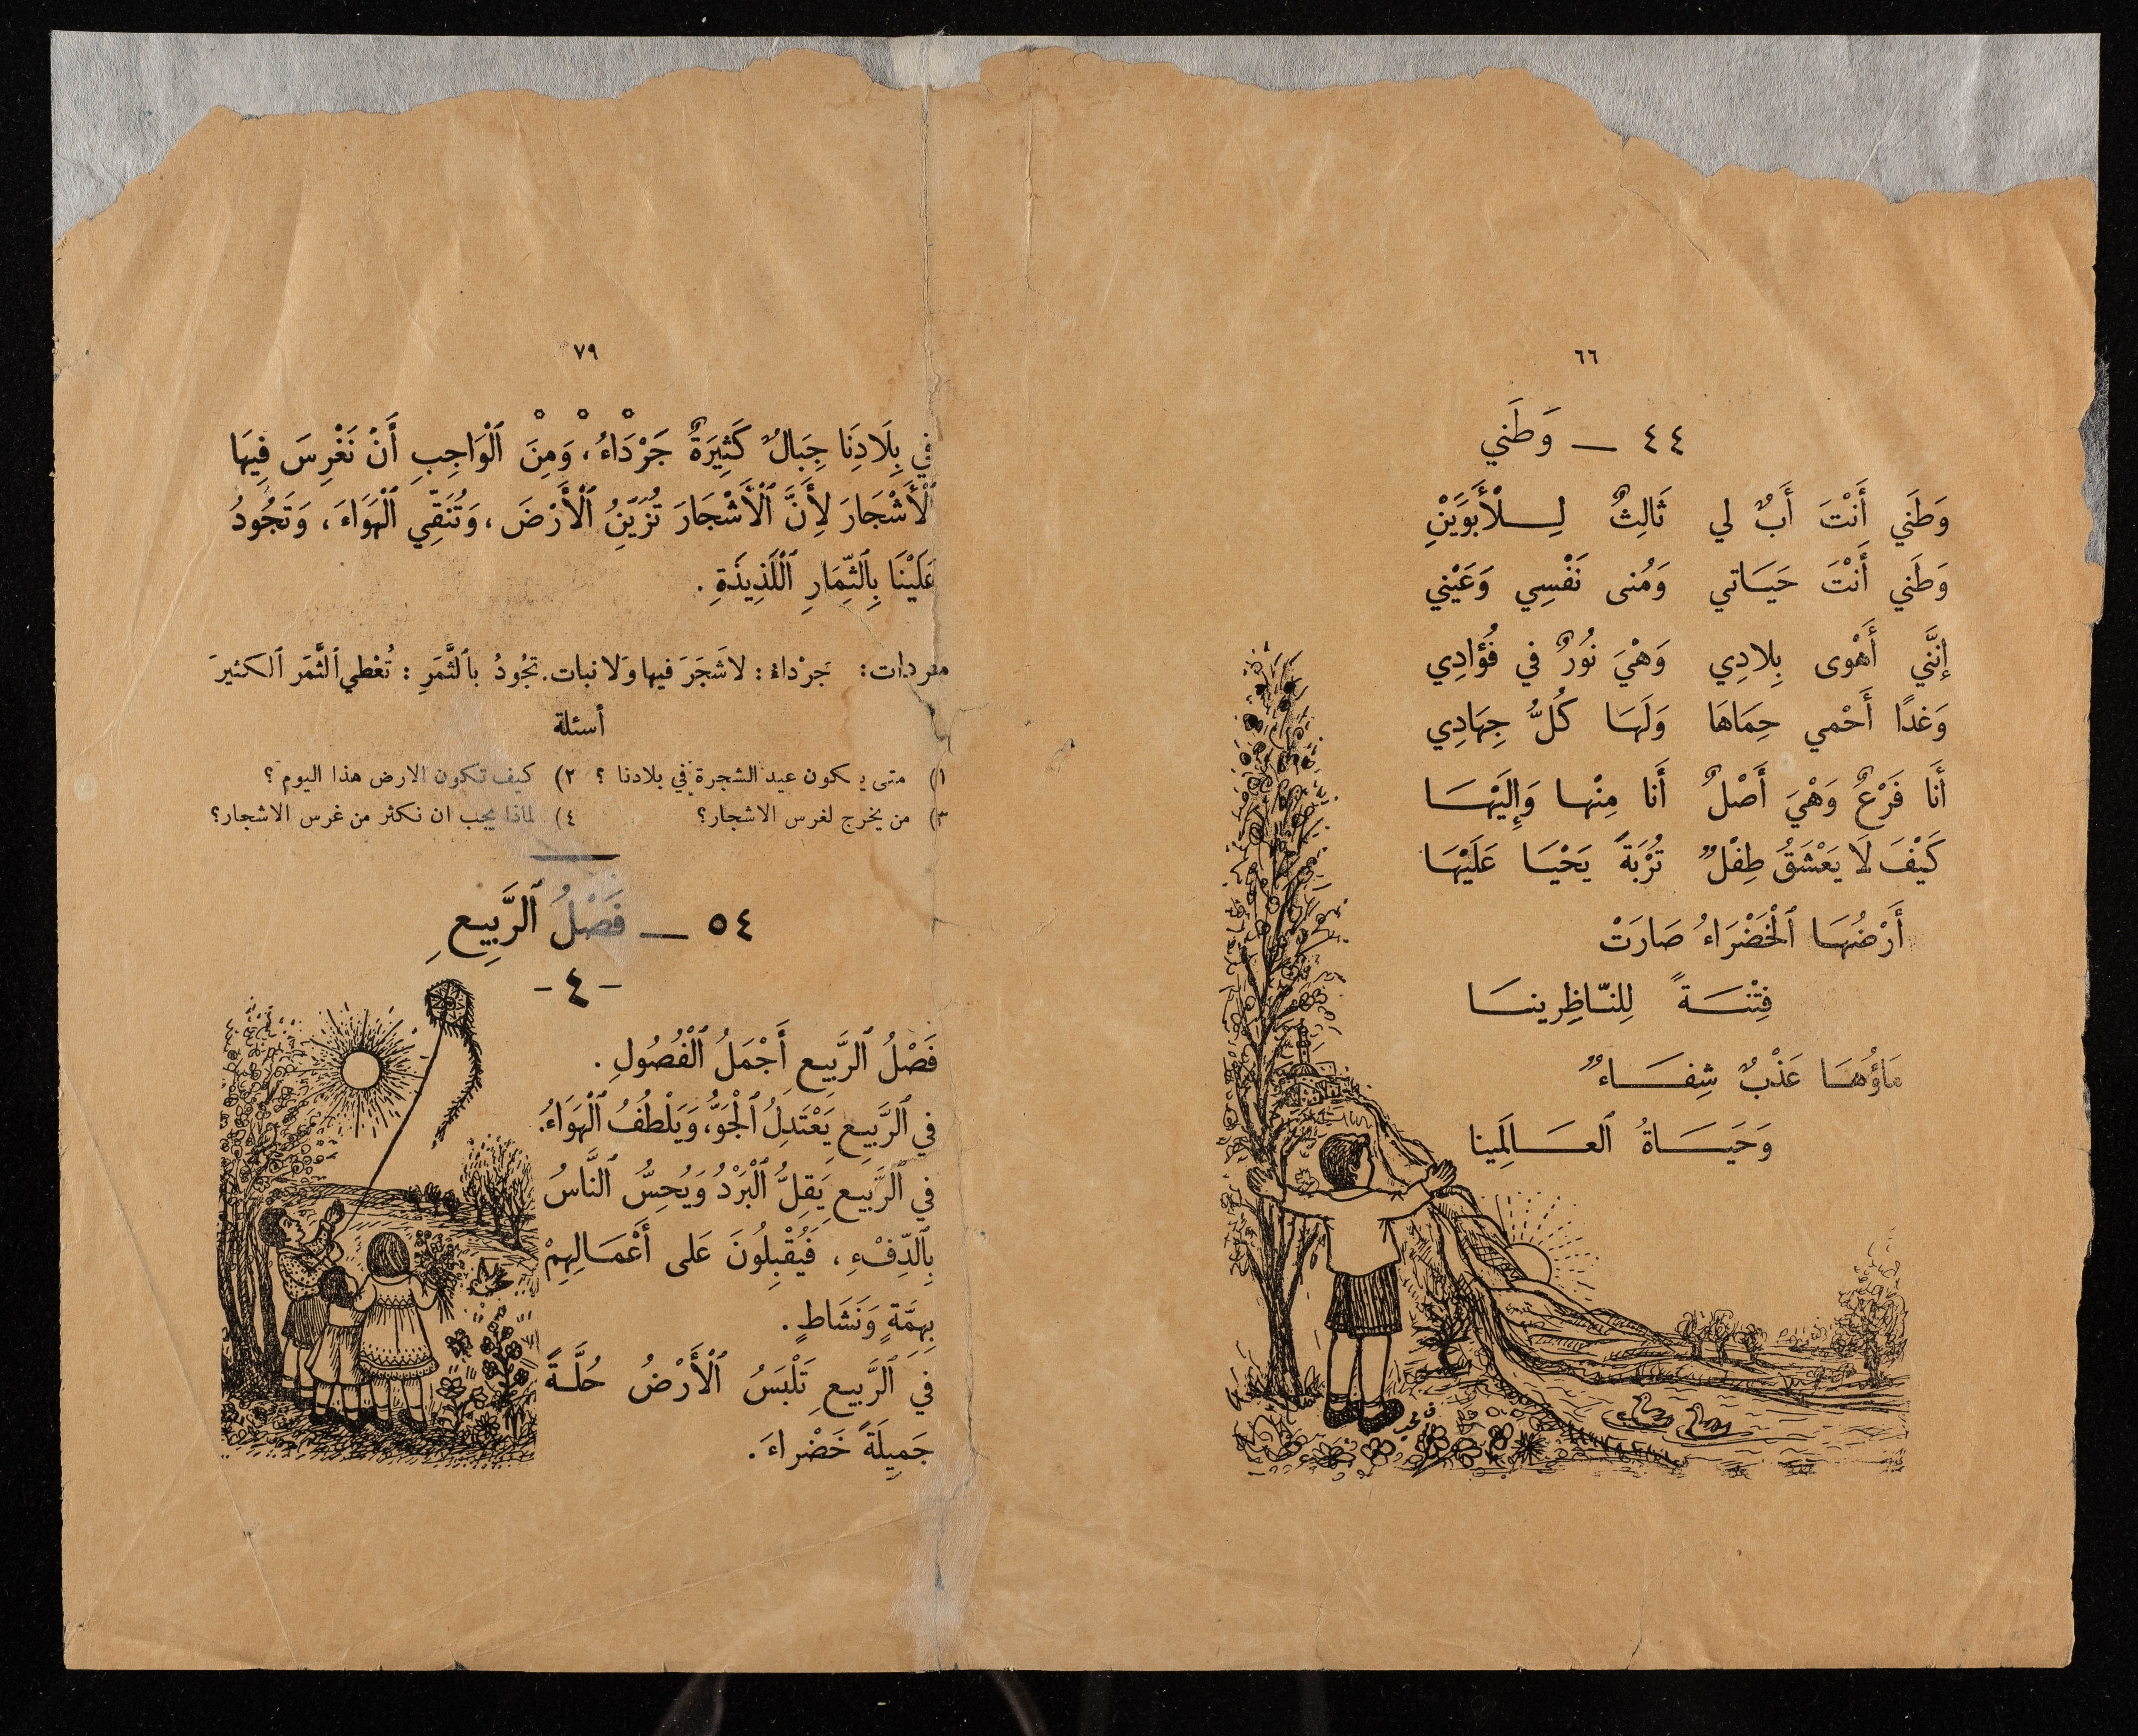 ٦٦
٤٤ — وَطَني
وَطَني أَنْتَ أَبٌ لي ثَالِثٌ لِلْأَبَوَيْنِ
وَطَني أَنْتَ حَيَاتي وَمُنى نَفْسِي وَعَيْني
إنَّني أَهْوى بِلادِي وَهْيَ نُورٌ في فُؤَادِي
وَغدًا أَحْمي حِمَاهَا وَلَهَا كُلُّ جِهَادِي
أَنَا فَرْعٌ وَهْيَ أَصْلٌ أَنَا مِنْها وَإِلَيْهَا
كَيْفَ لَا يَعْشَقُ طِفْلٌ تُرْبَةً يَحْيَا عَلَيْهَا
أَرْضُهَا ٱلْخَضْرَاءُ صَارَتْ
فِتْنَةً لِلنّاظِرِينَا
مَاؤُهَا عَذْبٌ شِفَاءٌ
وَحَيَاةُ ٱلعَالَمِينا
٧٩
في بِلَادِنَا جِبَالٌ كَثِيرَةٌ جَرْدَاءُ، وَمِنَ ٱلْوَاجِبِ أَنْ نَغْرِسَ فِيهَا
ٱلْأَشْجَارَ لِأَنَّ ٱلْأَشْجَارَ تُزَيِّنُ ٱلْأَرْضَ، وَتُنَقِّي ٱلْهَوَاءَ، وَتَجُودُ
عَلَيْنَا بِٱلثِّمَارِ ٱلْلَذِيذَةِ.
مفردات: جَرْداءُ: لا شَجَرَ فيها وَلا نبات. تجُودُ بٱلثَّمَرِ: تُعْطي ٱلثَّمَر ٱلكثيرَ
أسئلة
١) متى يكون عيد الشجرة في بلادنا ؟ ٢) كيف تكون الارض هذا اليوم ؟
٣) من يخرج لغرس الاشجار؟ ٤) لماذا يجب ان نكثر من غرس الاشجار؟
٥٤ — فَصْلُ ٱلرَّبِيعِ
- ٤ -
فَصْلُ ٱلرَّبِيعِ أَجْمَلُ ٱلْفُصُولِ.
في ٱلرَّبِيعِ يَعْتَدِلُ ٱلْجَوُّ، وَيَلْطُفُ ٱلْهَوَاءُ.
في ٱلرَّبِيعِ يَقِلُّ ٱلْبَرْدُ وَيُحِسُّ ٱلنَّاسُ
بِٱلدِّفْءِ، فَيُقْبِلُونَ عَلى أَعْمَالِهِمْ
بِهِمَّةٍ وَنَشَاطٍ.
في ٱلرَّبِيعِ تَلْبَسُ ٱلْأَرْضُ حُلَّةً
جَمِيلَةً خَضْراءَ.